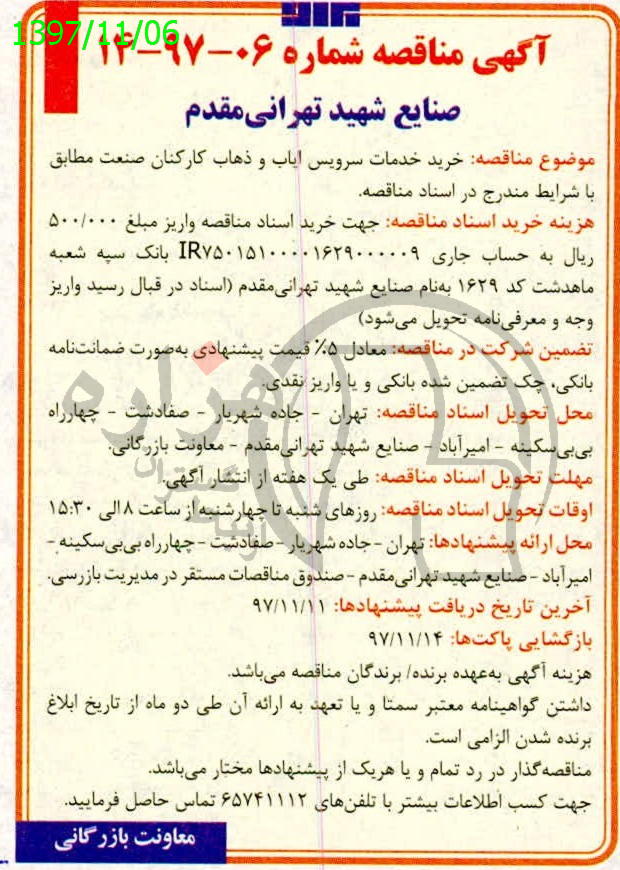 1397/11/06
آگهی مناقصه شماره ۰۶–۹۷–۱۴
صنایع شهید تهرانی‌مقدم
موضوع مناقصه: خرید خدمات سرویس ایاب و ذهاب کارکنان صنعت مطابق
با شرایط مندرج در اسناد مناقصه.
هزینه خرید اسناد مناقصه: جهت خرید اسناد مناقصه واریز مبلغ ۵۰۰/۰۰۰
ریال به حساب جاری IR۷۵۰۱۵۱۰۰۰۰۱۶۲۹۰۰۰۰۰۹ بانک سپه شعبه
ماهدشت کد ۱۶۲۹ به‌نام صنایع شهید تهرانی‌مقدم (اسناد در قبال رسید واریز
وجه و معرفی‌نامه تحویل می‌شود)
تضمین شرکت در مناقصه: معادل ۵٪ قیمت پیشنهادی به‌صورت ضمانت‌نامه
بانکی، چک تضمین شده بانکی و یا واریز نقدی.
محل تحویل اسناد مناقصه: تهران – جاده شهریار – صفادشت – چهارراه
بی‌بی‌سکینه – امیرآباد – صنایع شهید تهرانی‌مقدم – معاونت بازرگانی.
مهلت تحویل اسناد مناقصه: طی یک هفته از انتشار آگهی.
اوقات تحویل اسناد مناقصه: روزهای شنبه تا چهارشنبه از ساعت ۸ الی ۱۵:۳۰
محل ارائه پیشنهادها: تهران – جاده شهریار – صفادشت – چهارراه بی‌بی‌سکینه –
امیرآباد – صنایع شهید تهرانی‌مقدم – صندوق مناقصات مستقر در مدیریت بازرسی.
آخرین تاریخ دریافت پیشنهادها: ۹۷/۱۱/۱۱
بازگشایی پاکت‌ها: ۹۷/۱۱/۱۴
هزینه آگهی به‌عهده برنده/ برندگان مناقصه می‌باشد.
داشتن گواهینامه معتبر سمتا و یا تعهد به ارائه آن طی دو ماه از تاریخ ابلاغ
برنده شدن الزامی است.
مناقصه‌گذار در رد تمام و یا هریک از پیشنهادها مختار می‌باشد.
جهت کسب اطلاعات بیشتر با تلفن‌های ۶۵۷۴۱۱۱۲ تماس حاصل فرمایید.
معاونت بازرگانی
هزاره